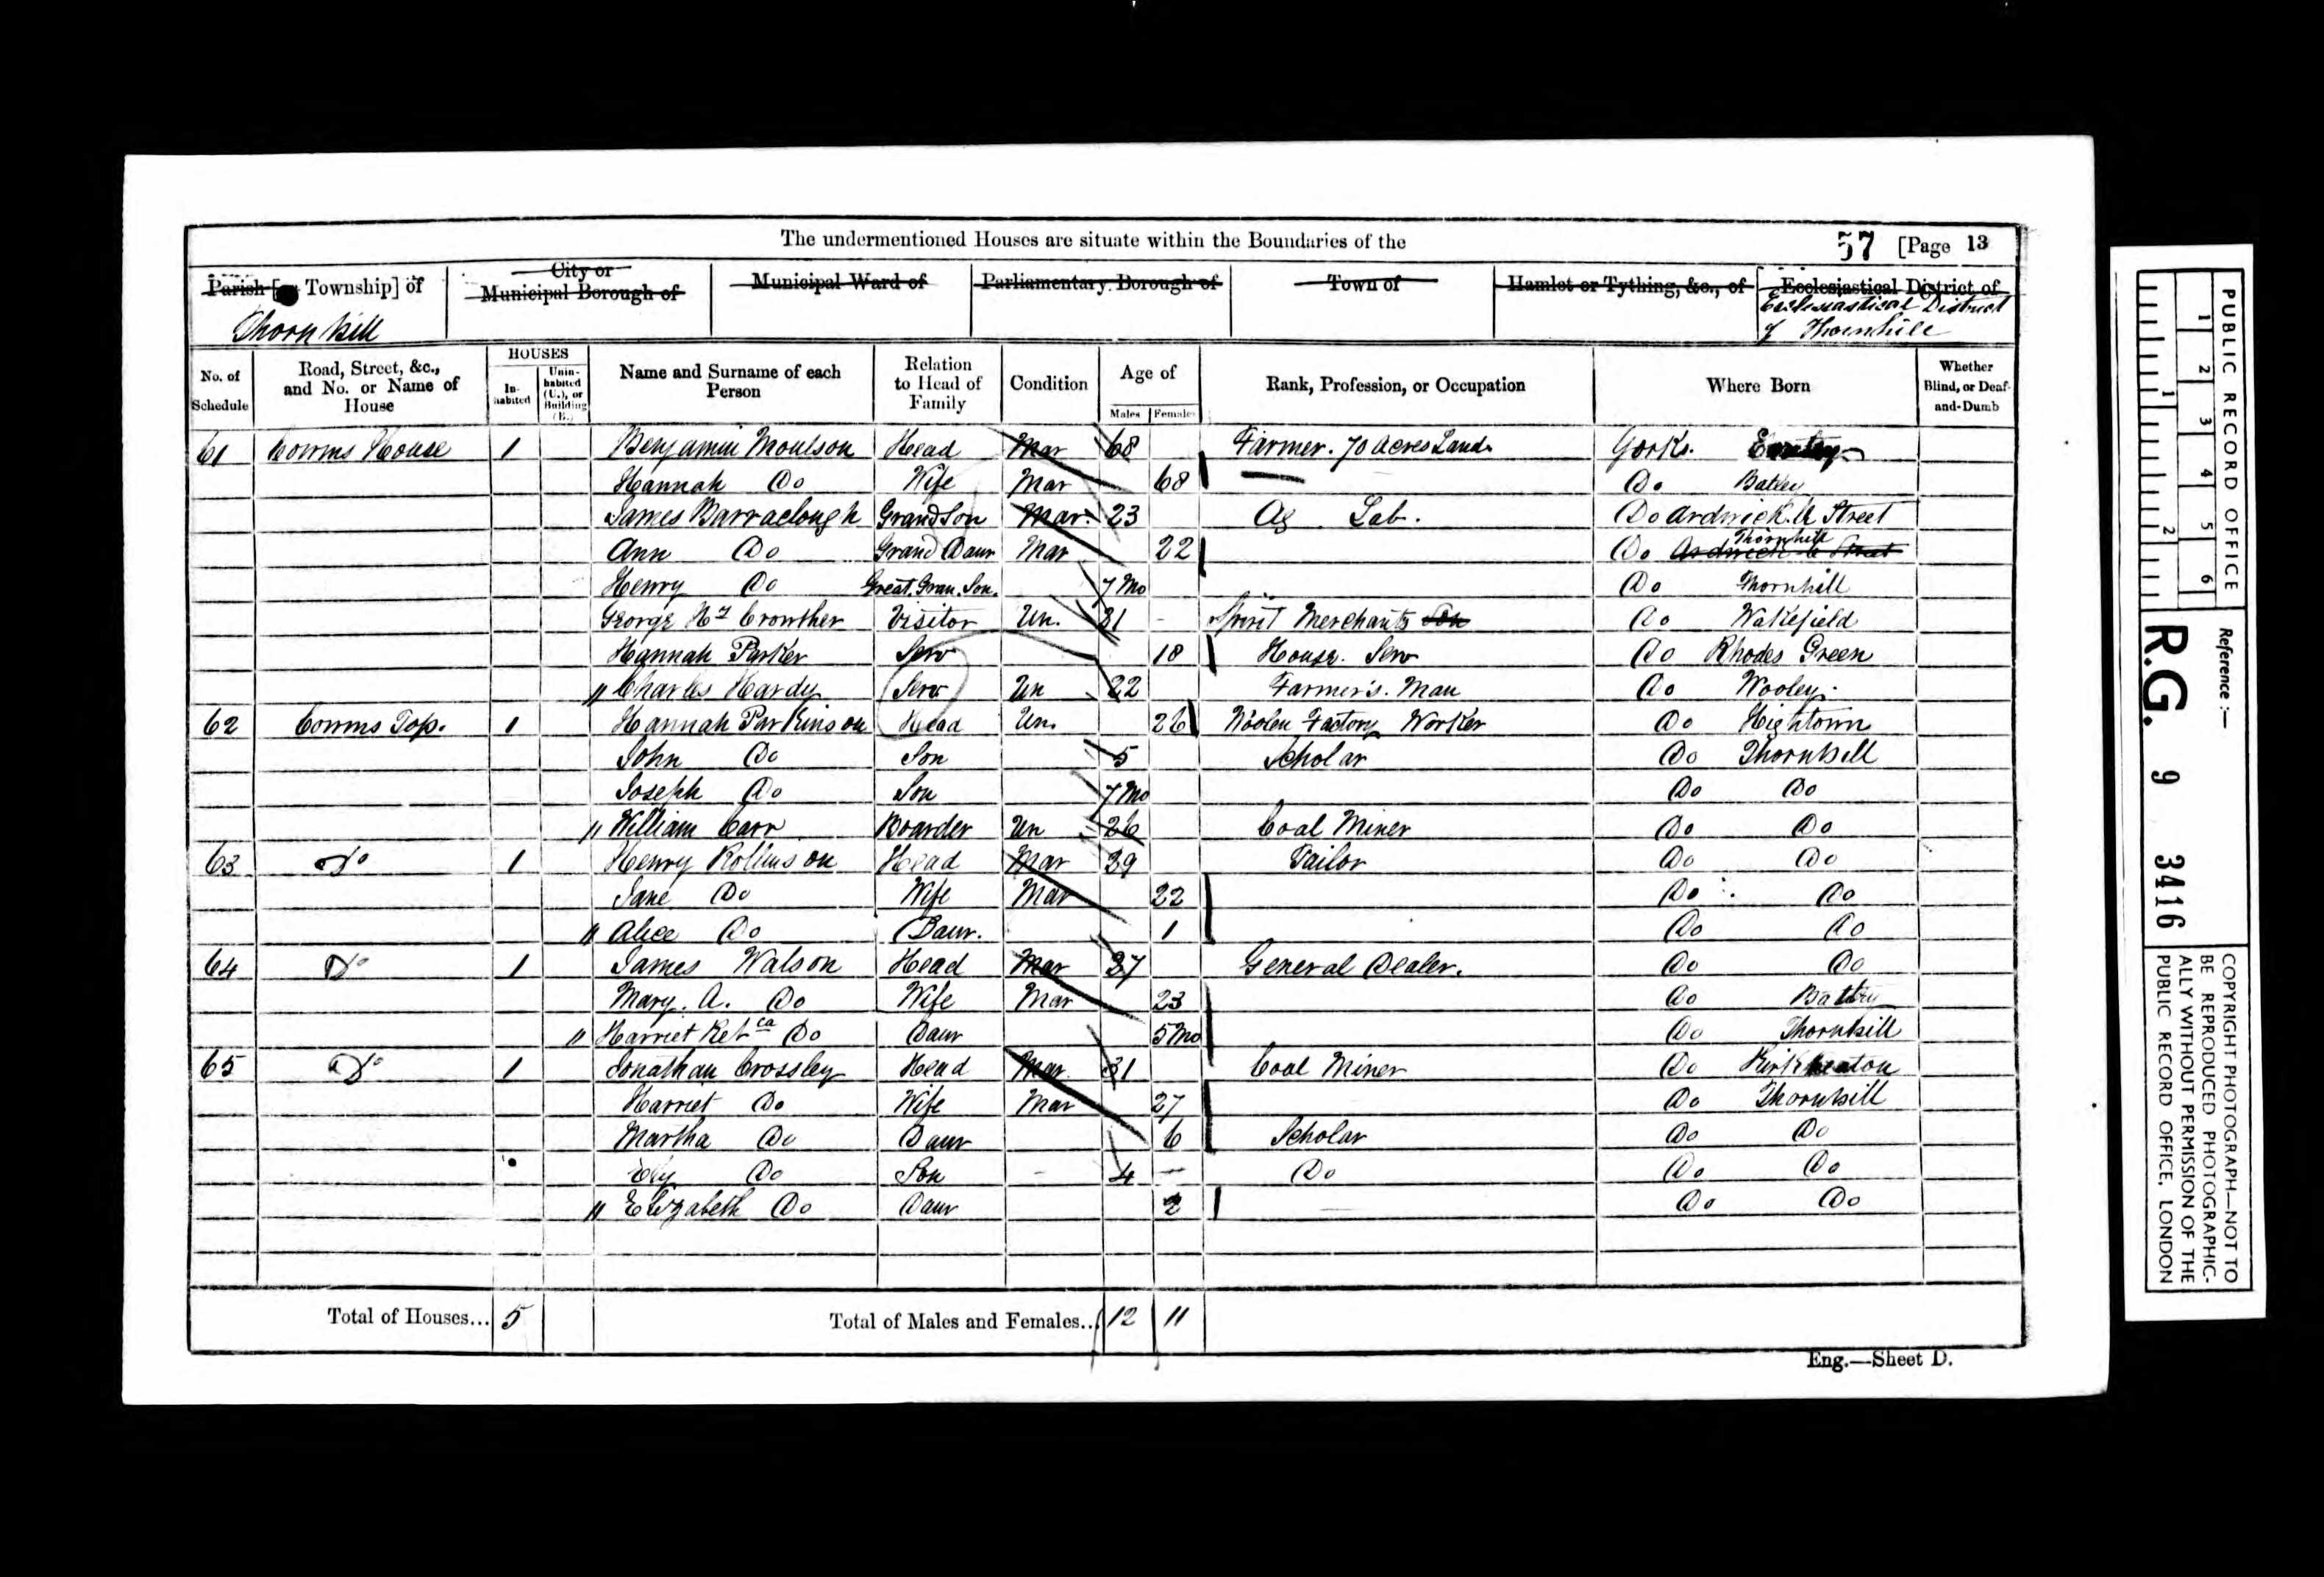 The undermentioned Houses are situate within the Boundaries of the 57 [Page 13
Parish [or Township] of City or Municipal Borough of Municipal Ward of Parliamentary Borough of Town of Hamlet or Tything, &c., of Ecclesiastical District of
Thornhill Ecclesiastical District of Thornhill
No. of Schedule Road, Street, &c., and No. or Name of House HOUSES Inhabited Uninhabited (U.), or Building (B.) Name and Surname of each Person Relation to Head of Family Condition Age of Males Females Rank, Profession, or Occupation Where Born Whether Blind, or Deaf-and-Dumb
61 Cowms House 1 Benjamin Moulson Head Mar 68 Farmer. 70 Acres Land. Yorks.
Hannah Do Wife Mar 68 Do Batley
James Barraclough Grand Son Mar. 23 Ag Lab. Do Ardwick le Street
Ann Do Grand Daur Mar 22 Do Ardwick le Street Thornhill
Henry Do Great. Gran. Son. 7 Mo Do Thornhill
George Crowther Visitor Un. 31 - Spirit Merchants Son Do Wakefield
Hannah Parker Serv 18 House. Serv Do Rhodes Green
" Charles Hardy Serv Un 22 Farmer's. Man Do Wooley.
62 Cowms Top. 1 Hannah Parkinson Head Un. 26 Woolen Factory Worker Do Hightown
John Do Son 5 Scholar Do Thornhill
Joseph Do Son 7 Mo Do Do
" William Carr Boarder Un 26 Coal Miner Do Do
63 Do 1 Henry Rollinson Head Mar 39 Tailor Do Do
Jane Do Wife Mar 22 Do Do
" Alice Do Daur. 1 Do Do
64 Do 1 James Watson Head Mar 37 General Dealer. Do Do
Mary. A. Do Wife Mar 23 Do Batley
" Harriet Rebca Do Daur 5 Mo Do Thornhill
65 Do 1 Jonathan Crossley Head Mar 31 Coal Miner Do Kirkheaton
Harriet Do Wife Mar 27 Do Thornhill
Martha Do Daur 6 Scholar Do Do
Ely Do Son - 4 - Do Do Do
" Elizabeth Do Daur 2 Do Do
Total of Houses... 5 Total of Males and Females... 12 11
Eng.—Sheet D.
PUBLIC RECORD OFFICE
1 2 3 4 5 6
1 2
Reference :—
R.G. 9 3416
COPYRIGHT PHOTOGRAPH—NOT TO
BE REPRODUCED PHOTOGRAPHIC-
ALLY WITHOUT PERMISSION OF THE
PUBLIC RECORD OFFICE, LONDON